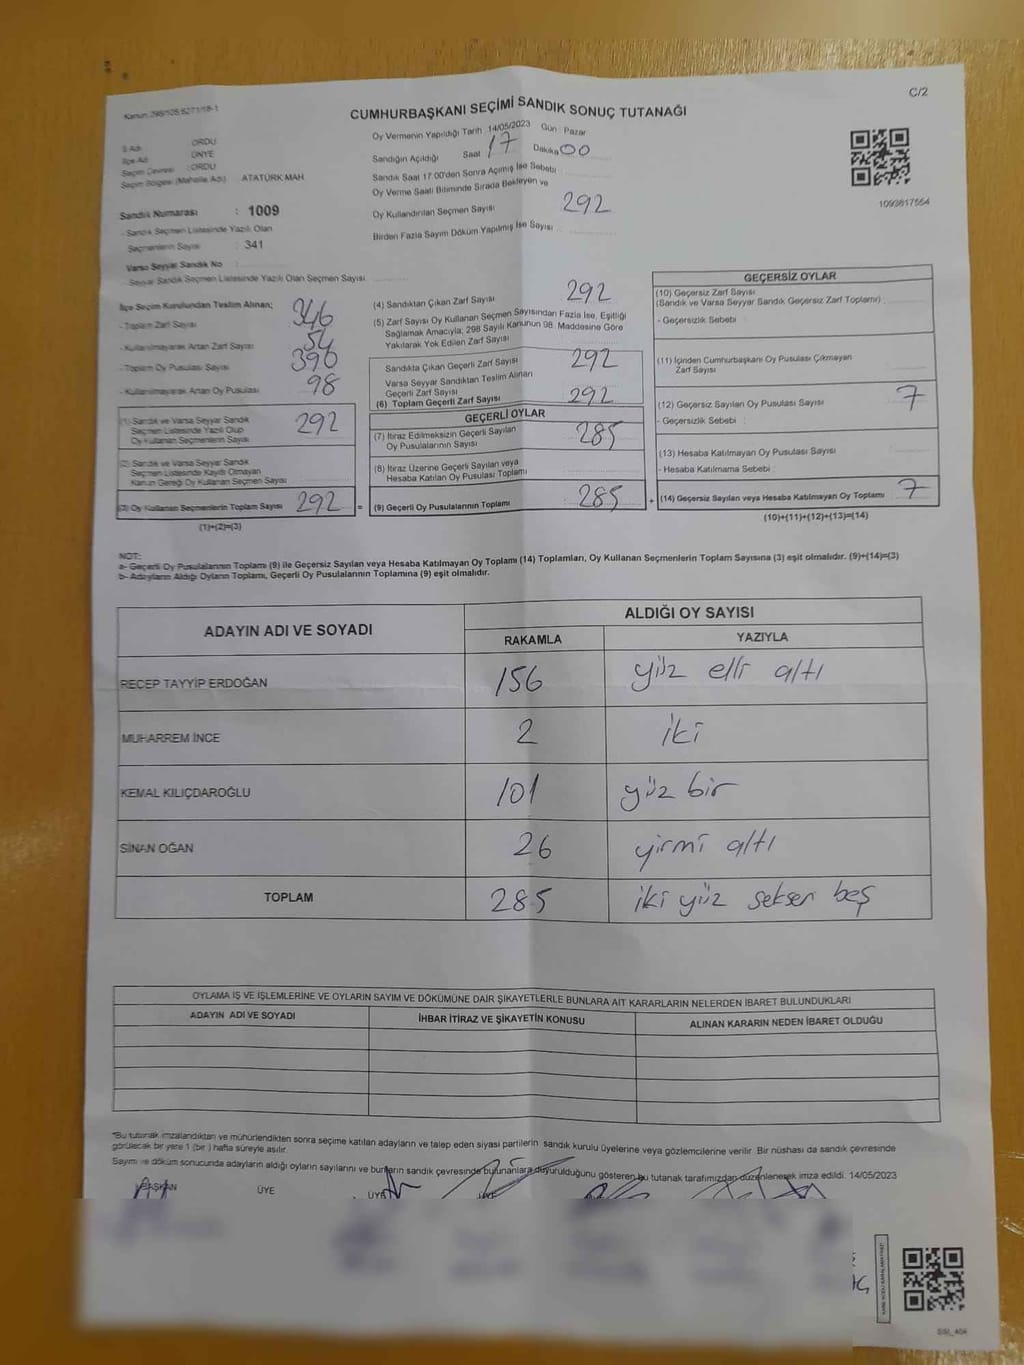 C/2
Kanun: 298/105,6271/18-1
CUMHURBAŞKANI SEÇİMİ SANDIK SONUÇ TUTANAĞI
İl Adı : ORDU
İlçe Adı : ÜNYE
Seçim Çevresi : ORDU
Seçim Bölgesi (Mahalle Adı) ATATÜRK MAH.
Oy Vermenin Yapıldığı Tarih 14/05/2023 Gün : Pazar
Sandığın Açıldığı Saat 17 Dakika 00
Sandık Saat 17:00'den Sonra Açımış İse Sebebi
Oy Verme Saati Bitiminde Sırada Bekleyen ve
Oy Kullandırılan Seçmen Sayısı 292
Birden Fazla Sayım Döküm Yapılmış İse Sayısı
1093817554
Sandık Numarası : 1009
- Sandık Seçmen Listesinde Yazılı Olan
Seçmenlerin Sayısı : 341
Varsa Seyyar Sandık No
- Seyyar Sandık Seçmen Listesinde Yazılı Olan Seçmen Sayısı
İlçe Seçim Kurulundan Teslim Alınan;
- Toplam Zarf Sayısı 346
- Kullanılmayarak Artan Zarf Sayısı 54
- Toplam Oy Pusulası Sayısı 390
- Kullanılmayarak Artan Oy Pusulası 98
(1) Sandık ve Varsa Seyyar Sandık
Seçmen Listesinde Yazılı Olup
Oy Kullanan Seçmenlerin Sayısı 292
(2) Sandık ve Varsa Seyyar Sandık
Seçmen Listesinde Kayıtlı Olmayan
Kanun Gereği Oy Kullanan Seçmen Sayısı
(3) Oy Kullanan Seçmenlerin Toplam Sayısı 292 =
(1)+(2)=(3)
(4) Sandıktan Çıkan Zarf Sayısı 292
(5) Zarf Sayısı Oy Kullanan Seçmen Sayısından Fazla İse, Eşitliği
Sağlamak Amacıyla; 298 Sayılı Kanunun 98. Maddesine Göre
Yakılarak Yok Edilen Zarf Sayısı
Sandıkta Çıkan Geçerli Zarf Sayısı 292
Varsa Seyyar Sandıktan Teslim Alınan
Geçerli Zarf Sayısı
(6) Toplam Geçerli Zarf Sayısı 292
GEÇERLİ OYLAR
(7) İtiraz Edilmeksizin Geçerli Sayılan
Oy Pusulalarının Sayısı 285
(8) İtiraz Üzerine Geçerli Sayılan veya
Hesaba Katılan Oy Pusulası Toplamı
(9) Geçerli Oy Pusulalarının Toplamı : 285 +
GEÇERSİZ OYLAR
(10) Geçersiz Zarf Sayısı
(Sandık ve Varsa Seyyar Sandık Geçersiz Zarf Toplamı) :
- Geçersizlik Sebebi :
(11) İçinden Cumhurbaşkanı Oy Pusulası Çıkmayan
Zarf Sayısı
(12) Geçersiz Sayılan Oy Pusulası Sayısı 7
- Geçersizlik Sebebi :
(13) Hesaba Katılmayan Oy Pusulası Sayısı
- Hesaba Katılmama Sebebi :
(14) Geçersiz Sayılan veya Hesaba Katılmayan Oy Toplamı 7
(10)+(11)+(12)+(13)=(14)
NOT:
a- Geçerli Oy Pusulalarının Toplamı (9) ile Geçersiz Sayılan veya Hesaba Katılmayan Oy Toplamı (14) Toplamları, Oy Kullanan Seçmenlerin Toplam Sayısına (3) eşit olmalıdır. (9)+(14)=(3)
b- Adayların Aldığı Oyların Toplamı, Geçerli Oy Pusulalarının Toplamına (9) eşit olmalıdır.
ADAYIN ADI VE SOYADI
ALDIĞI OY SAYISI
RAKAMLA YAZIYLA
RECEP TAYYİP ERDOĞAN 156 yüz elli altı
MUHARREM İNCE 2 iki
KEMAL KILIÇDAROĞLU 101 yüz bir
SİNAN OĞAN 26 yirmi altı
TOPLAM 285 iki yüz seksen beş
OYLAMA İŞ VE İŞLEMLERİNE VE OYLARIN SAYIM VE DÖKÜMÜNE DAİR ŞİKAYETLERLE BUNLARA AİT KARARLARIN NELERDEN İBARET BULUNDUKLARI
ADAYIN ADI VE SOYADI İHBAR İTİRAZ VE ŞİKAYETİN KONUSU ALINAN KARARIN NEDEN İBARET OLDUĞU
*Bu tutanak imzalandıktan ve mühürlendikten sonra seçime katılan adayların ve talep eden siyasi partilerin sandık kurulu üyelerine veya gözlemcilerine verilir. Bir nüshası da sandık çevresinde
görülecek bir yere 1 (bir) hafta süreyle asılır.
Sayım ve döküm sonucunda adayların aldığı oyların sayılarını ve bunların sandık çevresinde bulunanlara duyurulduğunu gösteren bu tutanak tarafımızdan düzenlenerek imza edildi. 14/05/2023
BAŞKAN ÜYE ÜYE ÜYE